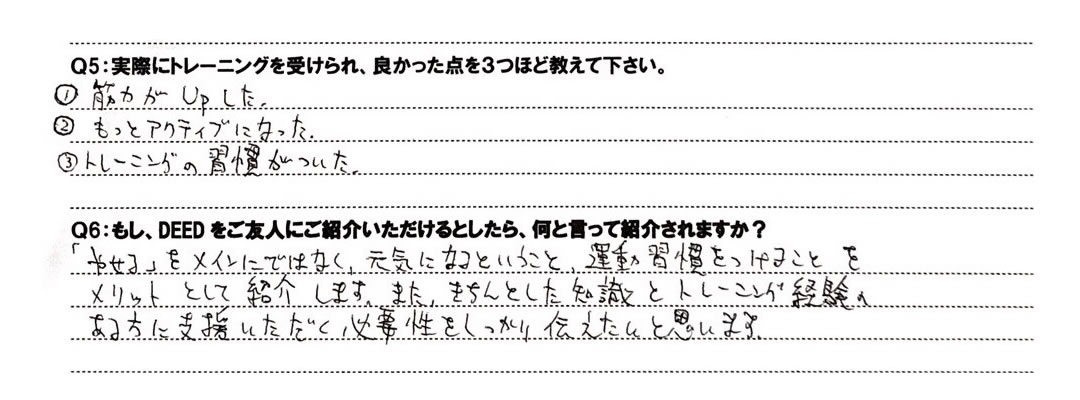 Q5:実際にトレーニングを受けられ、良かった点を3つほど教えて下さい。
① 筋力が Upした。
② もっとアクティブになった。
③トレーニングの習慣がついた。
Q6:もし、DEEDをご友人にご紹介いただけるとしたら、何と言って紹介されますか？
「やせる」をメインにではなく、元気になるということ、運動習慣をつけることを
メリットとして紹介します。また、きちんとした知識とトレーニング経験の
ある方に支援いただく必要性をしっかり伝えたいと思います。